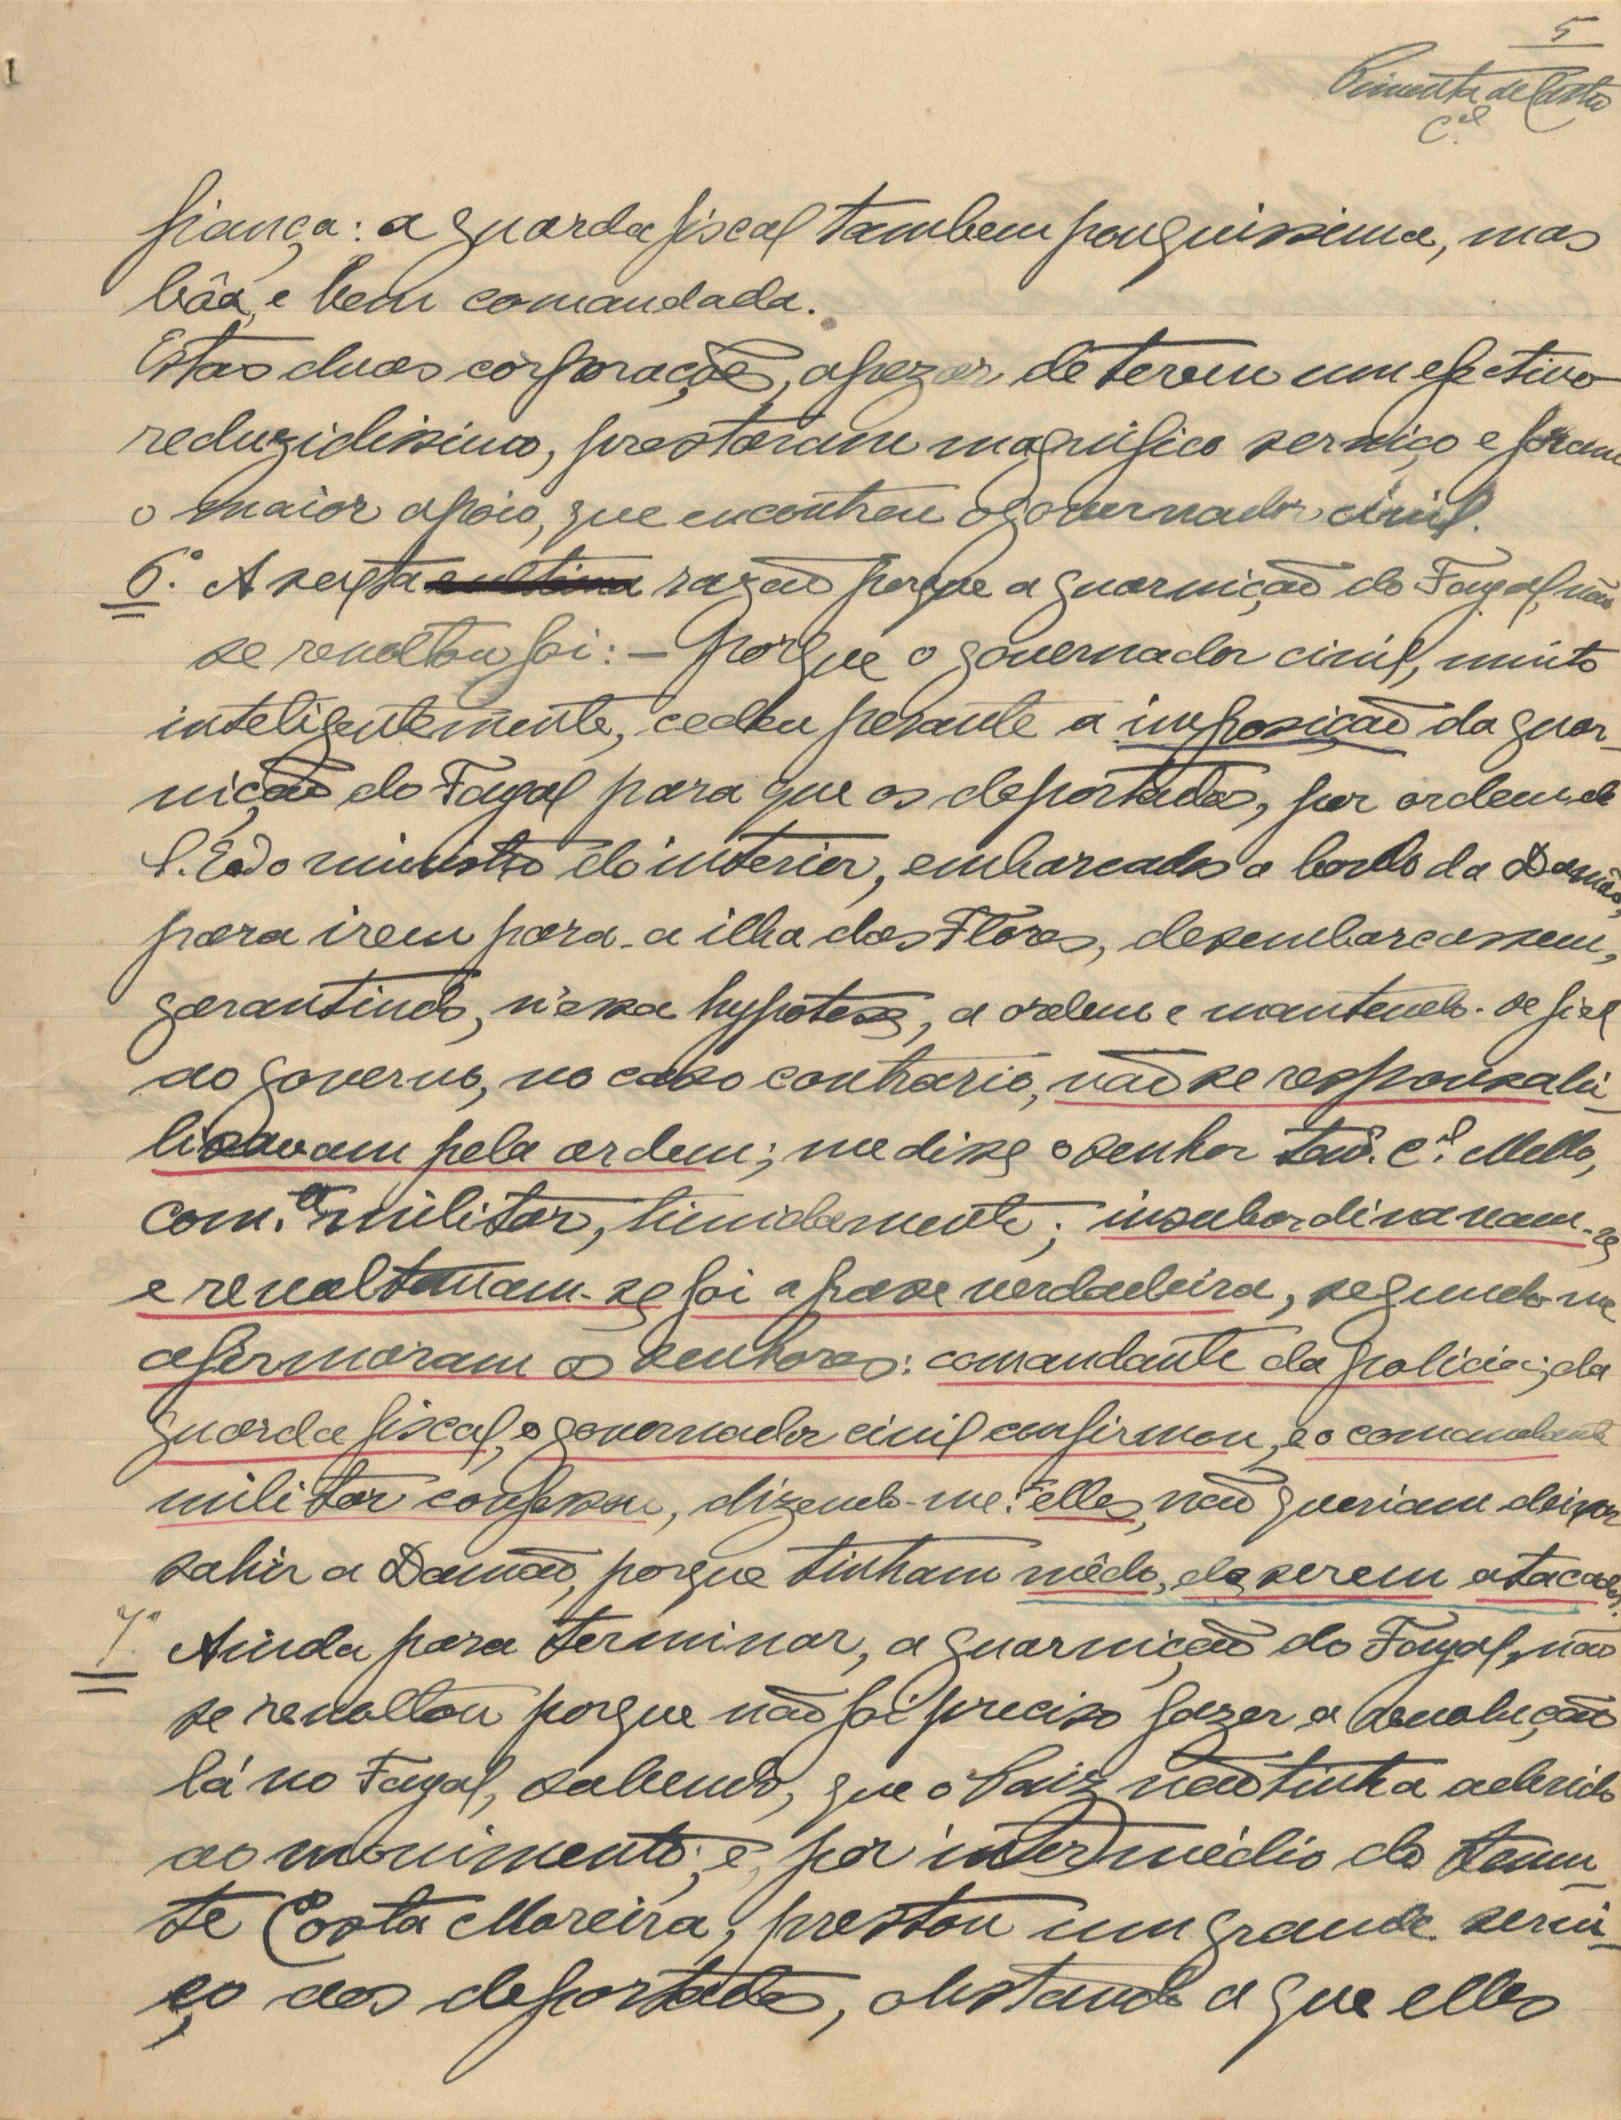 5
Pimenta de Castro
C.el
fiança: a guarda fiscal tambem pouquissima, mas
bôa, e bem comandada.
Estas duas corporações, apezar de terem um efectivo
reduzidissimo, prestaram magnifico serviço e foram
o maior apoio, que encontrou o governador civil.
6.º A sexta e ultima razão porque a guarnição do Fayal, não
se revoltou foi: — Porque o governador civil, muito
inteligentemente, cedeu perante a imposição da guar-
nição do Fayal para que os deportados, por ordem de
S. Exª o ministro do interior, embarcados a bordo da Damão,
para irem para a ilha das Flores, desembarcassem,
garantindo, n'essa hypotese, a ordem e mantendo-se fiel
ao governo, no caso contrario, não se responsabi-
lisavam pela ordem; me disse o senhor Ten. C.el Mello,
com.e militar, timidamente; insubordinavam-se
e revoltavam-se foi a frase verdadeira, segundo me
afirmaram os senhores: comandante da policia; da
guarda fiscal, o governador civil confirmou, e o comandante
militar confessou, dizendo-me: "elles, não queriam deixar
sahir a Damão, porque tinham mêdo, de serem atacados.
7.º Ainda para terminar, a guarnição do Fayal, não
se revoltou porque não foi preciso fazer a revolução
lá no Fayal, sabendo, que o Paiz não tinha aderido
ao movimento; e, por intermédio do tenen-
te Costa Moreira, prestou um grande servi-
ço aos deportados, obstando a que elles